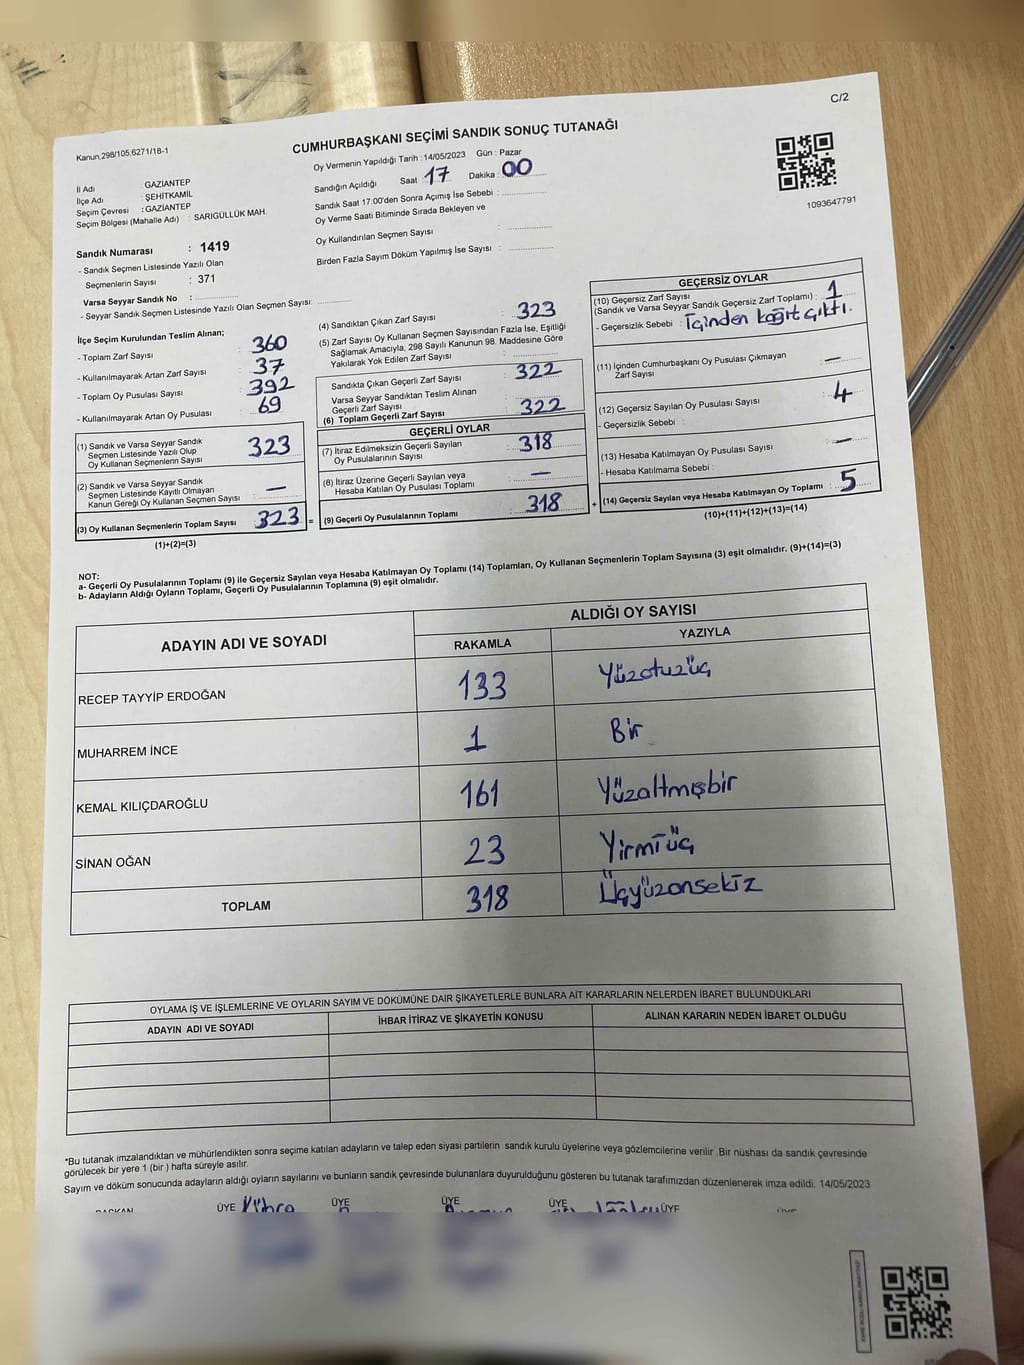 C/2
Kanun,298/105,6271/18-1
CUMHURBAŞKANI SEÇİMİ SANDIK SONUÇ TUTANAĞI
İl Adı GAZİANTEP
İlçe Adı : ŞEHİTKAMİL
Seçim Çevresi : GAZİANTEP
Seçim Bölgesi (Mahalle Adı) : SARIGÜLLÜK MAH.
Sandık Numarası : 1419
- Sandık Seçmen Listesinde Yazılı Olan
Seçmenlerin Sayısı : 371
Varsa Seyyar Sandık No :
- Seyyar Sandık Seçmen Listesinde Yazılı Olan Seçmen Sayısı:
Oy Vermenin Yapıldığı Tarih : 14/05/2023 Gün : Pazar
Sandığın Açıldığı Saat 17 Dakika : 00
Sandık Saat 17:00'den Sonra Açımış İse Sebebi :
Oy Verme Saati Bitiminde Sırada Bekleyen ve
Oy Kullandırılan Seçmen Sayısı :
Birden Fazla Sayım Döküm Yapılmış İse Sayısı :
1093647791
İlçe Seçim Kurulundan Teslim Alınan;
- Toplam Zarf Sayısı : 360
- Kullanılmayarak Artan Zarf Sayısı : 37
- Toplam Oy Pusulası Sayısı : 392
- Kullanılmayarak Artan Oy Pusulası : 69
(1) Sandık ve Varsa Seyyar Sandık
Seçmen Listesinde Yazılı Olup
Oy Kullanan Seçmenlerin Sayısı : 323
(2) Sandık ve Varsa Seyyar Sandık
Seçmen Listesinde Kayıtlı Olmayan
Kanun Gereği Oy Kullanan Seçmen Sayısı : —
(3) Oy Kullanan Seçmenlerin Toplam Sayısı 323 =
(1)+(2)=(3)
(4) Sandıktan Çıkan Zarf Sayısı : 323
(5) Zarf Sayısı Oy Kullanan Seçmen Sayısından Fazla İse, Eşitliği
Sağlamak Amacıyla, 298 Sayılı Kanunun 98. Maddesine Göre
Yakılarak Yok Edilen Zarf Sayısı :
Sandıkta Çıkan Geçerli Zarf Sayısı : 322
Varsa Seyyar Sandıktan Teslim Alınan
Geçerli Zarf Sayısı :
(6) Toplam Geçerli Zarf Sayısı : 322
GEÇERLİ OYLAR
(7) İtiraz Edilmeksizin Geçerli Sayılan
Oy Pusulalarının Sayısı : 318
(8) İtiraz Üzerine Geçerli Sayılan veya
Hesaba Katılan Oy Pusulası Toplamı : —
(9) Geçerli Oy Pusulalarının Toplamı : 318 +
GEÇERSİZ OYLAR
(10) Geçersiz Zarf Sayısı
(Sandık ve Varsa Seyyar Sandık Geçersiz Zarf Toplamı) : 1
- Geçersizlik Sebebi : İçinden kağıt çıktı.
(11) İçinden Cumhurbaşkanı Oy Pusulası Çıkmayan
Zarf Sayısı : —
(12) Geçersiz Sayılan Oy Pusulası Sayısı : 4
- Geçersizlik Sebebi :
(13) Hesaba Katılmayan Oy Pusulası Sayısı : —
- Hesaba Katılmama Sebebi :
(14) Geçersiz Sayılan veya Hesaba Katılmayan Oy Toplamı : 5
(10)+(11)+(12)+(13)=(14)
NOT:
a- Geçerli Oy Pusulalarının Toplamı (9) ile Geçersiz Sayılan veya Hesaba Katılmayan Oy Toplamı (14) Toplamları, Oy Kullanan Seçmenlerin Toplam Sayısına (3) eşit olmalıdır. (9)+(14)=(3)
b- Adayların Aldığı Oyların Toplamı, Geçerli Oy Pusulalarının Toplamına (9) eşit olmalıdır.
ADAYIN ADI VE SOYADI ALDIĞI OY SAYISI
RAKAMLA YAZIYLA
RECEP TAYYİP ERDOĞAN 133 Yüzotuzüç
MUHARREM İNCE 1 Bir
KEMAL KILIÇDAROĞLU 161 Yüzaltmışbir
SİNAN OĞAN 23 Yirmiüç
TOPLAM 318 Üçyüzonsekiz
OYLAMA İŞ VE İŞLEMLERİNE VE OYLARIN SAYIM VE DÖKÜMÜNE DAİR ŞİKAYETLERLE BUNLARA AİT KARARLARIN NELERDEN İBARET BULUNDUKLARI
ADAYIN ADI VE SOYADI İHBAR İTİRAZ VE ŞİKAYETİN KONUSU ALINAN KARARIN NEDEN İBARET OLDUĞU
*Bu tutanak imzalandıktan ve mühürlendikten sonra seçime katılan adayların ve talep eden siyasi partilerin sandık kurulu üyelerine veya gözlemcilerine verilir. Bir nüshası da sandık çevresinde
görülecek bir yere 1 (bir) hafta süreyle asılır.
Sayım ve döküm sonucunda adayların aldığı oyların sayılarını ve bunların sandık çevresinde bulunanlara duyurulduğunu gösteren bu tutanak tarafımızdan düzenlenerek imza edildi. 14/05/2023
BAŞKAN ÜYE Kübra ÜYE ÜYE ÜYE ÜYE ÜYE